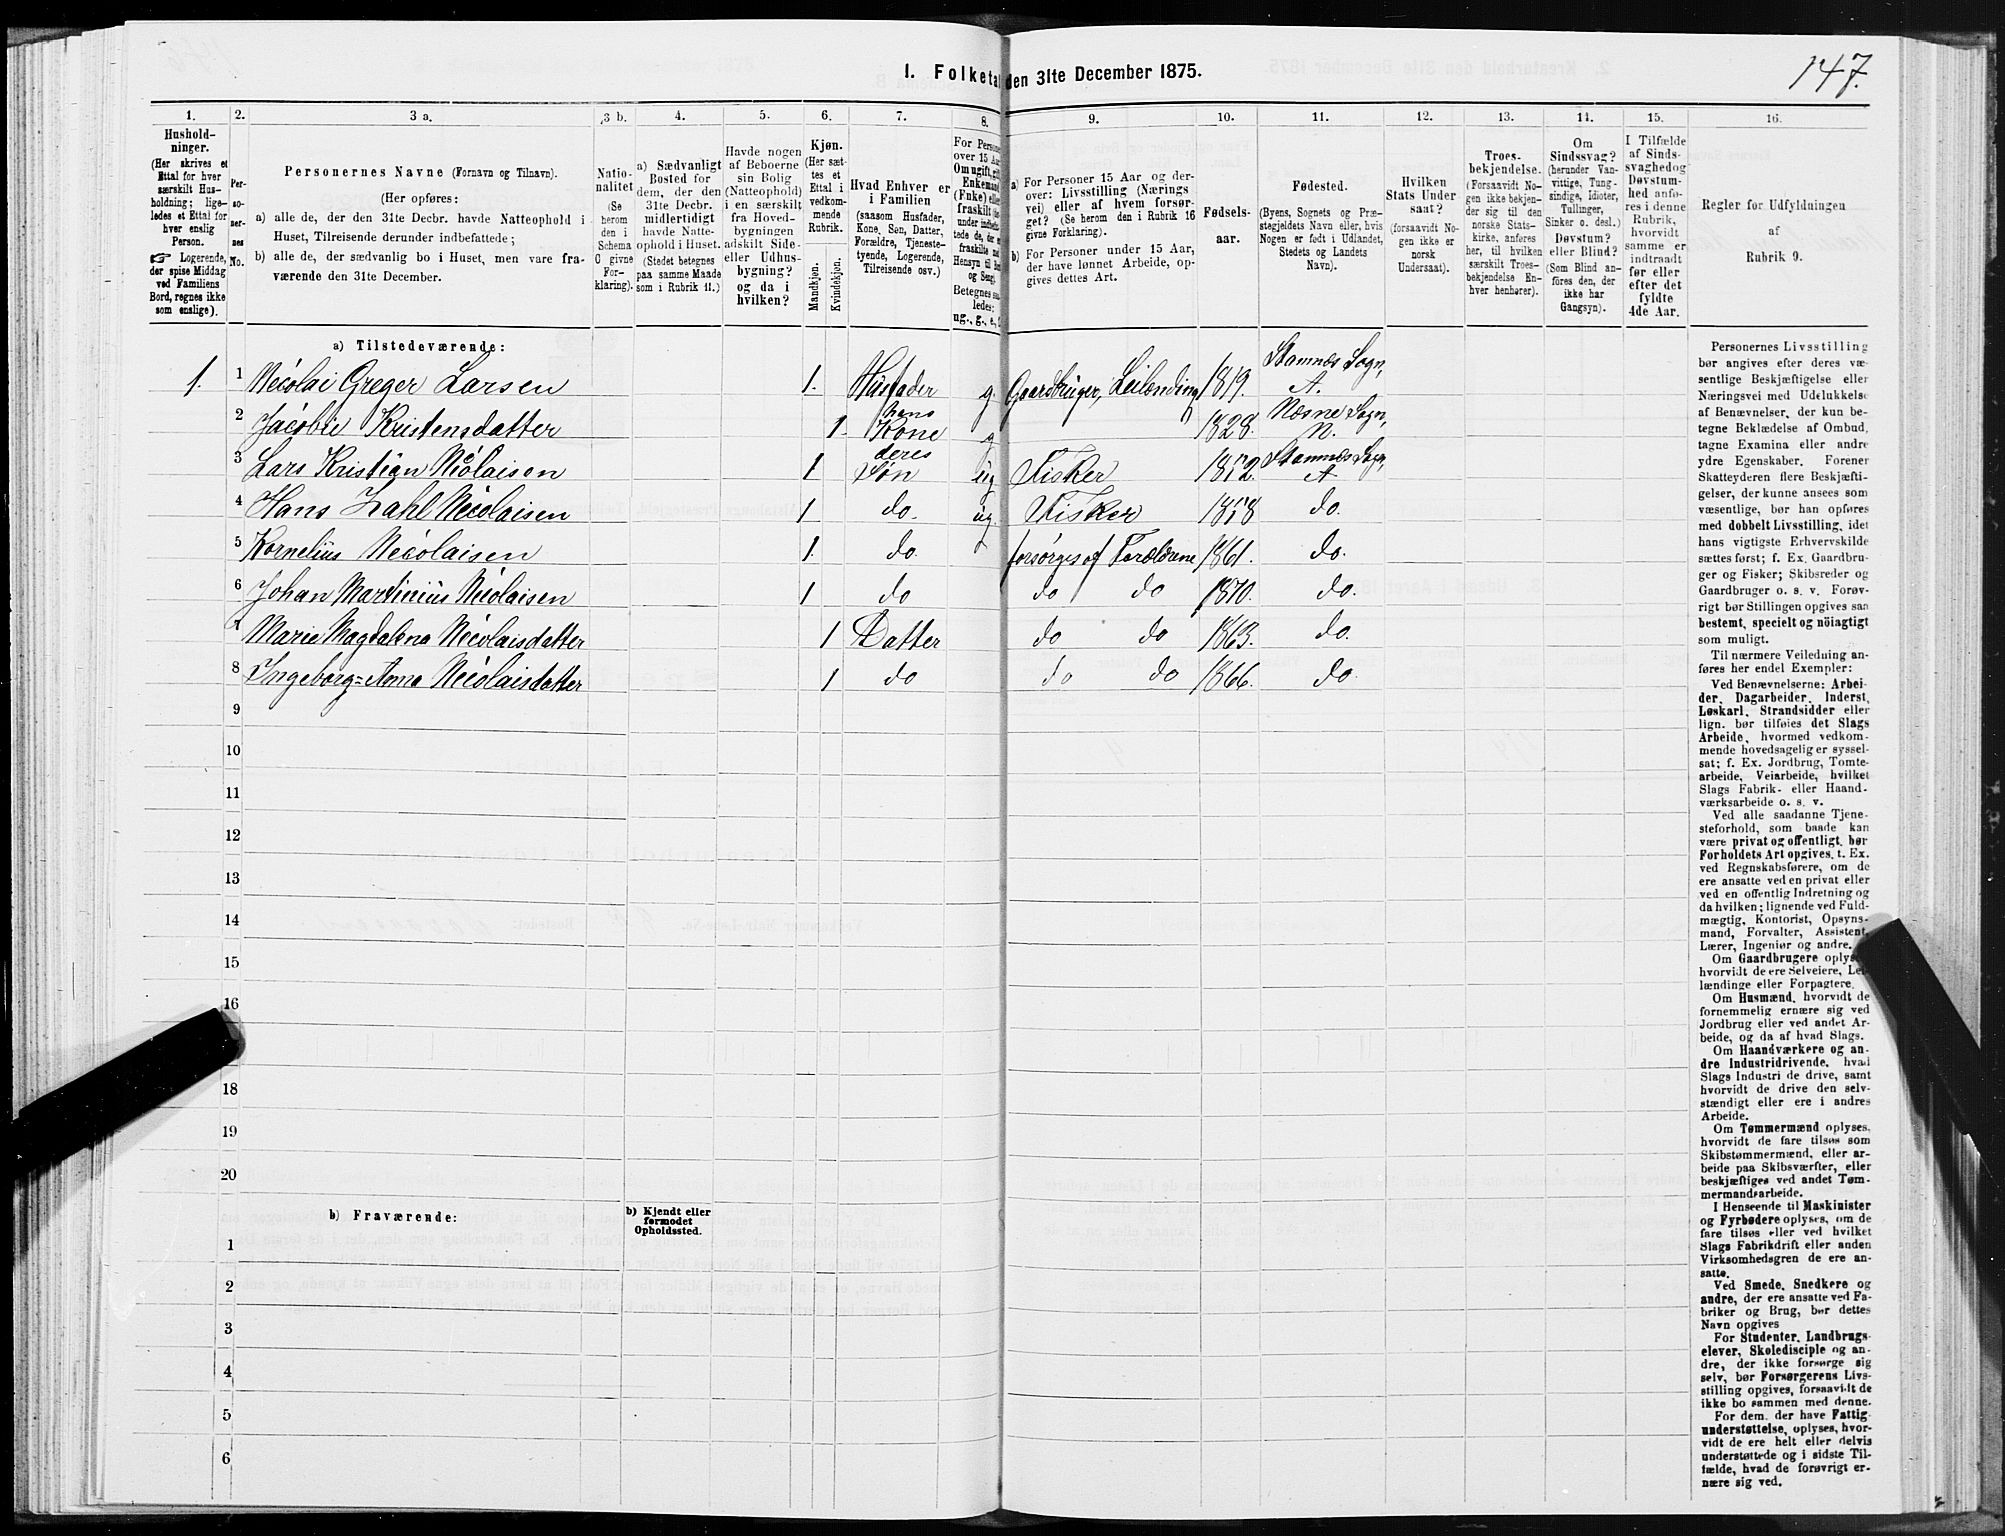 147.
1. Folketal den 31te December 1875.
1. 2. 3 a. 3 b. 4. 5. 6. 7. 8. 9. 10. 11. 12. 13. 14. 15. 16.
Hushold-
ninger.
(Her skrives et
Ettal for hver
særskilt Hus-
holdning; lige-
ledes et Ettal for
hver enslig
Person.
☞ Logerende,
der spise Middag
ved Familiens
Bord, regnes ikke
som enslige).
Per-
so-
ner-
nes
No.
Personernes Navne (Fornavn og Tilnavn).
(Her opføres:
a) alle de, der den 31te Decbr. havde Natteophold i
Huset, Tilreisende derunder indbefattede;
b) alle de, der sædvanlig bo i Huset, men vare fra-
værende den 31te December.
Natio-
nalitet
(Se
herom
den i
Schema
C givne
For-
klaring).
a) Sædvanligt
Bosted for
dem, der den
31te Decbr.
midlertidigt
havde Natte-
ophold i Huset.
(Stedet betegnes
paa samme Maade
som i Rubrik 11.)
Havde nogen
af Beboerne
sin Bolig
(Natteophold)
i en særskilt
fra Hoved-
bygningen
adskilt Side-
eller Udhus-
bygning?
og da i
hvilken?
Kjøn.
(Her sæt-
tes et
Ettal i
vedkom-
mende
Rubrik.
Mandkjøn.
Kvindekjøn.
Hvad Enhver er
i Familien
(saasom Husfader,
Kone, Søn, Datter,
Forældre, Tjeneste-
tyende, Logerende,
Tilreisende osv.)
For Persone
over 15 Aar
Om ugift, gift
Enkemand
(Enke) eller
fraskilt
Betegnes saa-
ledes:
ug., g., e., f.
a) For Personer 15 Aar og der-
over: Livsstilling (Nærings
vei) eller af hvem forsør-
get? (Se herom den i Rubrik 16
givne Forklaring).
b) For Personer under 15 Aar,
der have lønnet Arbeide, op-
gives dettes Art.
Fødsels-
aar.
Fødested.
(Byens, Sognets og Præ-
stegjeldets Navn eller, hvis
Nogen er født i Udlandet,
Stedets og Landets
Navn).
Hvilken
Stats Under
saat?
(forsaavidt No-
gen ikke er
norsk
Undersaat).
Troes-
bekjendelse.
(Forsaavidt No-
gen ikke bekjen-
der sig til den
norske Stats-
kirke, anføres
her, til hvilken
særskilt Troes-
bekjendelse En-
hver henhører).
Om
Sindssvag?
(herunder Van-
vittige, Tung-
sindige, Idioter,
Tullinger,
Sinker o. desl.)
Døvstum?
eller Blind?
(Som Blind an-
føres den, der
ikke har
Gangsyn).
I Tilfælde
af Sinds-
svaghed og
Døvstum-
hed anfø-
res i denne
Rubrik,
hvorvidt
samme er
indtraadt
før eller
efter det
fyldte
4de Aar.
Regler for Udfyldningen
af
Rubrik 9.
a) Tilstedeværende:
1. 1 Nicolai Greger Larsen 1. Husfader g. Gaardbruger, Leilænding 1819. Stamnæs Sogn, A.
2 Jacobie Kristensdatter 1. hans Kone g 1828. Næsne Sogn, N.
3 Lars Kristian Nicolaisen 1 deres Søn ug Fisker 1852. Stamnæs Sogn, A
4 Hans Zahl Nicolaisen 1 do. ug. Fisker 1858 do.
5 Kornelius Nicolaisen 1. do. forsørges af Forældrene 1861. do.
6 Johan Martinius Nicolaisen 1 do do do 1870. do.
7 Marie Magdalena Nicolaisdatter 1 Datter do do 1863. do.
8 Ingeborg=Anna Nicolaisdatter 1 do do do 1866. do.
9
10
11
12
13
14
15
16
18
19
20
b) Fraværende:
b) Kjendt eller
formodet
Opholdssted.
1
2
3
4
5
6
Personernes Livsstilling
bør angives efter deres væ-
sentlige Beskjæftigelse eller
Næringsvei med Udelukkelse
af Benævnelser, der kun be-
tegne Beklædelse af Ombud,
tagne Examina eller andre
ydre Egenskaber. Forener
Skatteyderen flere Beskjæfti-
gelser, der kunne ansees som
væsentlige, bør han opføres
med dobbelt Livsstilling, idet
hans vigtigste Erhvervskilde
sættes først; f. Ex. Gaardbru-
ger og Fisker; Skibsreder og
Gaardbruger o. s. v. Forøv-
rigt bør Stillingen opgives saa
bestemt, specielt og nöiagtigt
som muligt.
Til nærmere Veiledning an-
føres her endel Exempler:
Ved Benævnelserne: Arbei-
der, Dagarbeider, Inderst,
Løskarl, Strandsidder eller
lign. bør tilføies det Slags
Arbeide, hvormed vedkom-
mende hovedsagelig er syssel-
sat; f. Ex. Jordbrug, Tomte-
arbeide, Veiarbeide, hvilket
Slags Fabrik- eller Haand-
værksarbeide o. s. v.
Ved alle saadanne Tjene-
steforhold, som baade kan
være privat og offentligt, bør
Forholdets Art opgives, t. Ex.
ved Regnskabsførere, om de
ere ansatte ved en privat eller
ved en offentlig Indretning og
da hvilken; lignende ved Fuld-
mægtig, Kontorist, Opsyns-
mand, Forvalter, Assistent,
Lærer, Ingeniør og andre.
Om Gaardbrugere oplyses,
hvorvidt de ere Selveiere, Lei-
lændinge eller Forpagtere.
Om Husmænd, hvorvidt de
fornemmelig ernære sig ved
Jordbrug eller ved andet Ar-
beide, og da af hvad Slags.
Om Haandværkere og an-
dre Industridrivende, hvad
Slags Industri de drive, samt
hvorvidt de drive den selv-
stændigt eller ere i andres
Arbeide.
Om Tømmermænd oplyses,
hvorvidt de fare tilsøs som
Skibstømmermænd, eller ar-
beide paa Skibsværfter, eller
beskjæftiges ved andet Tøm-
mermandsarbeide.
I Henseende til Maskinister
og Fyrbødere oplyses, om de
fare tilsøs eller ved hvilket
Slags Fabrikdrift eller anden
Virksomhedsgren de ere an-
satte.
Ved Smede, Snedkere og
andre, der ere ansatte ved Fa-
briker og Brug, bør dettes
Navn opgives
For Studenter, Landbrugs-
elever, Skoledisciple og an-
dre, der ikke forsørge sig
selv, bør Forsørgerens Livs-
stilling opgives, forsaavidt de
ikke bo sammen med denne.
For dem, der have Fattig-
understøttelse, oplyses, hvor-
vidt de ere helt eller delvis
understøttede og i sidste Til-
fælde, hvad de forøvrigt er-
nære sig ved.